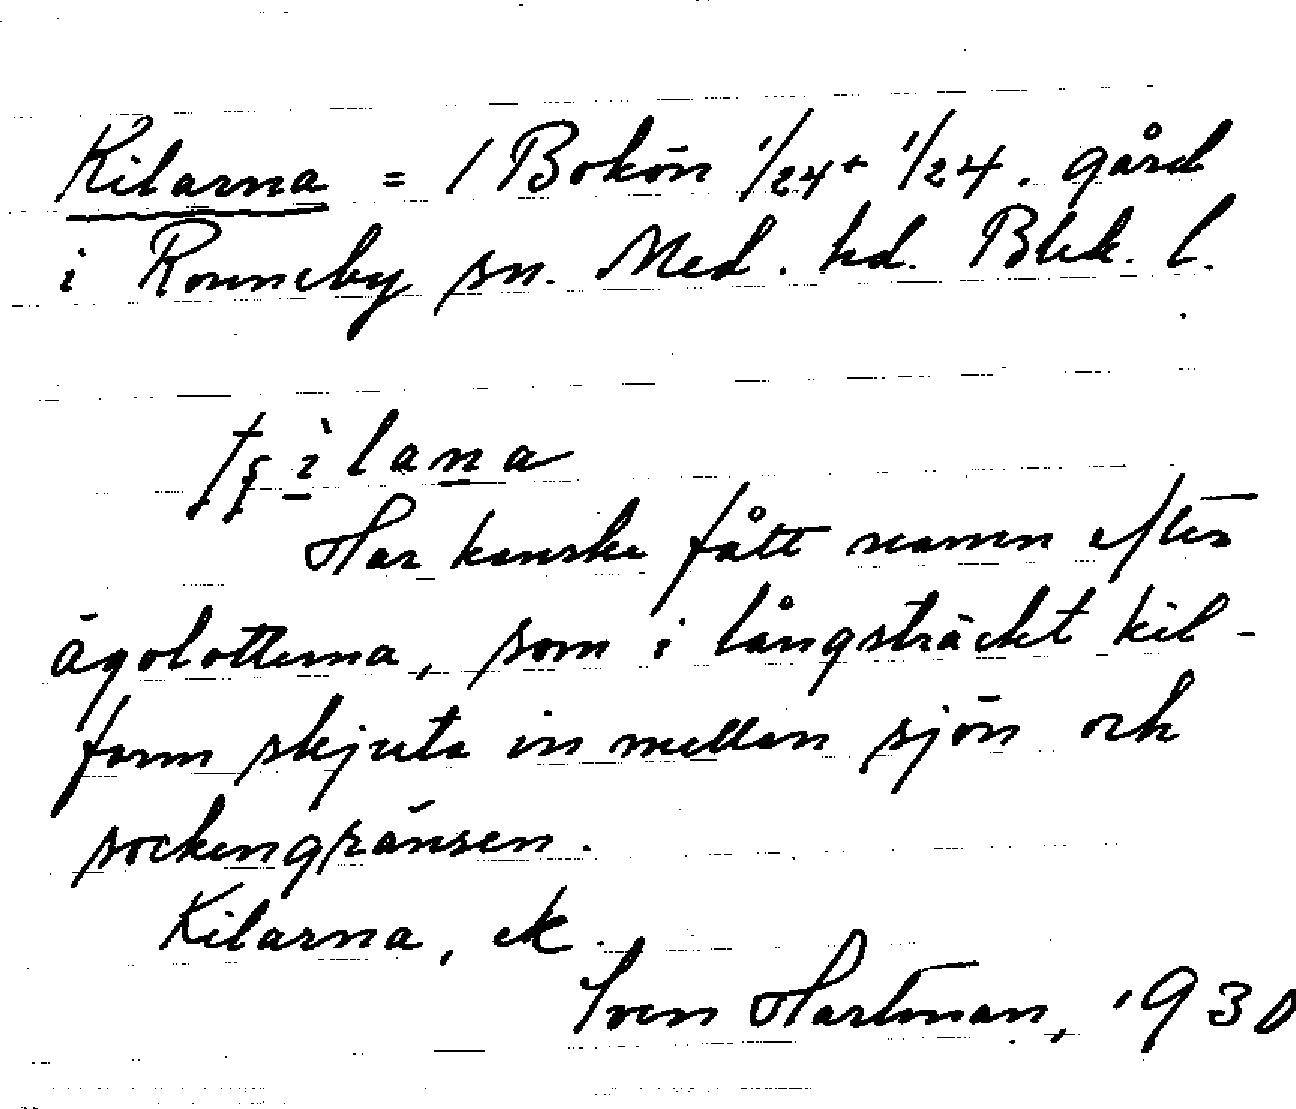 Kilarna = 1 Bokön 1/24 + 1/24. gård
i Ronneby sn. Med. hd. Blek. l.
Har kanske fått namn efter
ägolotterna, som i långsträckt kil-
form skjuta in mellan sjön och
sockengränsen.
Kilarna, ek.
Sven Hartman, 1930